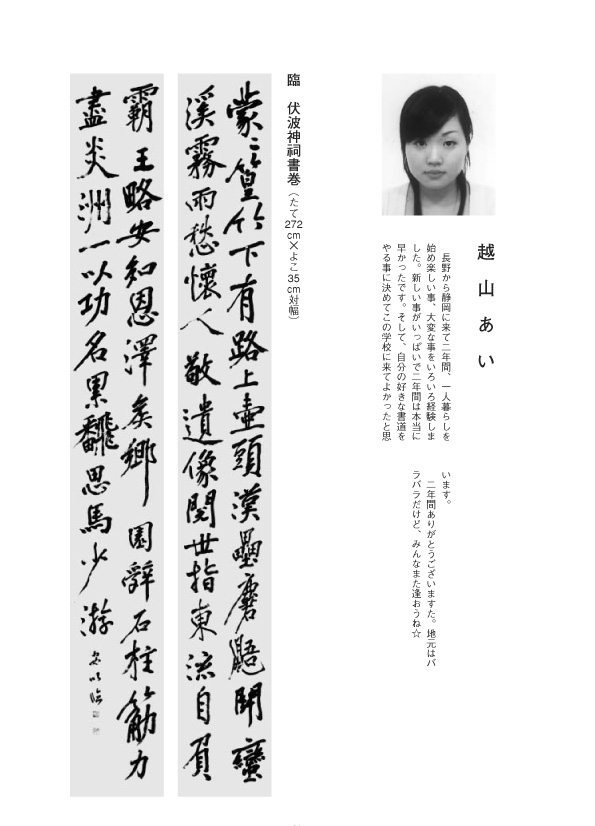 越山あい
長野から静岡に来て二年間、一人暮らしを
始め楽しい事、大変な事をいろいろ経験しま
した。新しい事がいっぱいで二年間は本当に
早かったです。そして、自分の好きな書道を
やる事に決めてこの学校に来てよかったと思
います。
二年間ありがとうございますた。地元はバ
ラバラだけど、みんなまた逢おうね☆
臨　伏波神祠書巻（たて272cm×よこ35cm対幅）
蒙々篁竹下有路上壺頭漢壘麏鼯闘蠻
溪霧雨愁懷人敬遺像閲世指東流自負
霸王略安知恩澤矣鄉園辭石柱筋力
盡炎洲一以功名累翻思馬少游